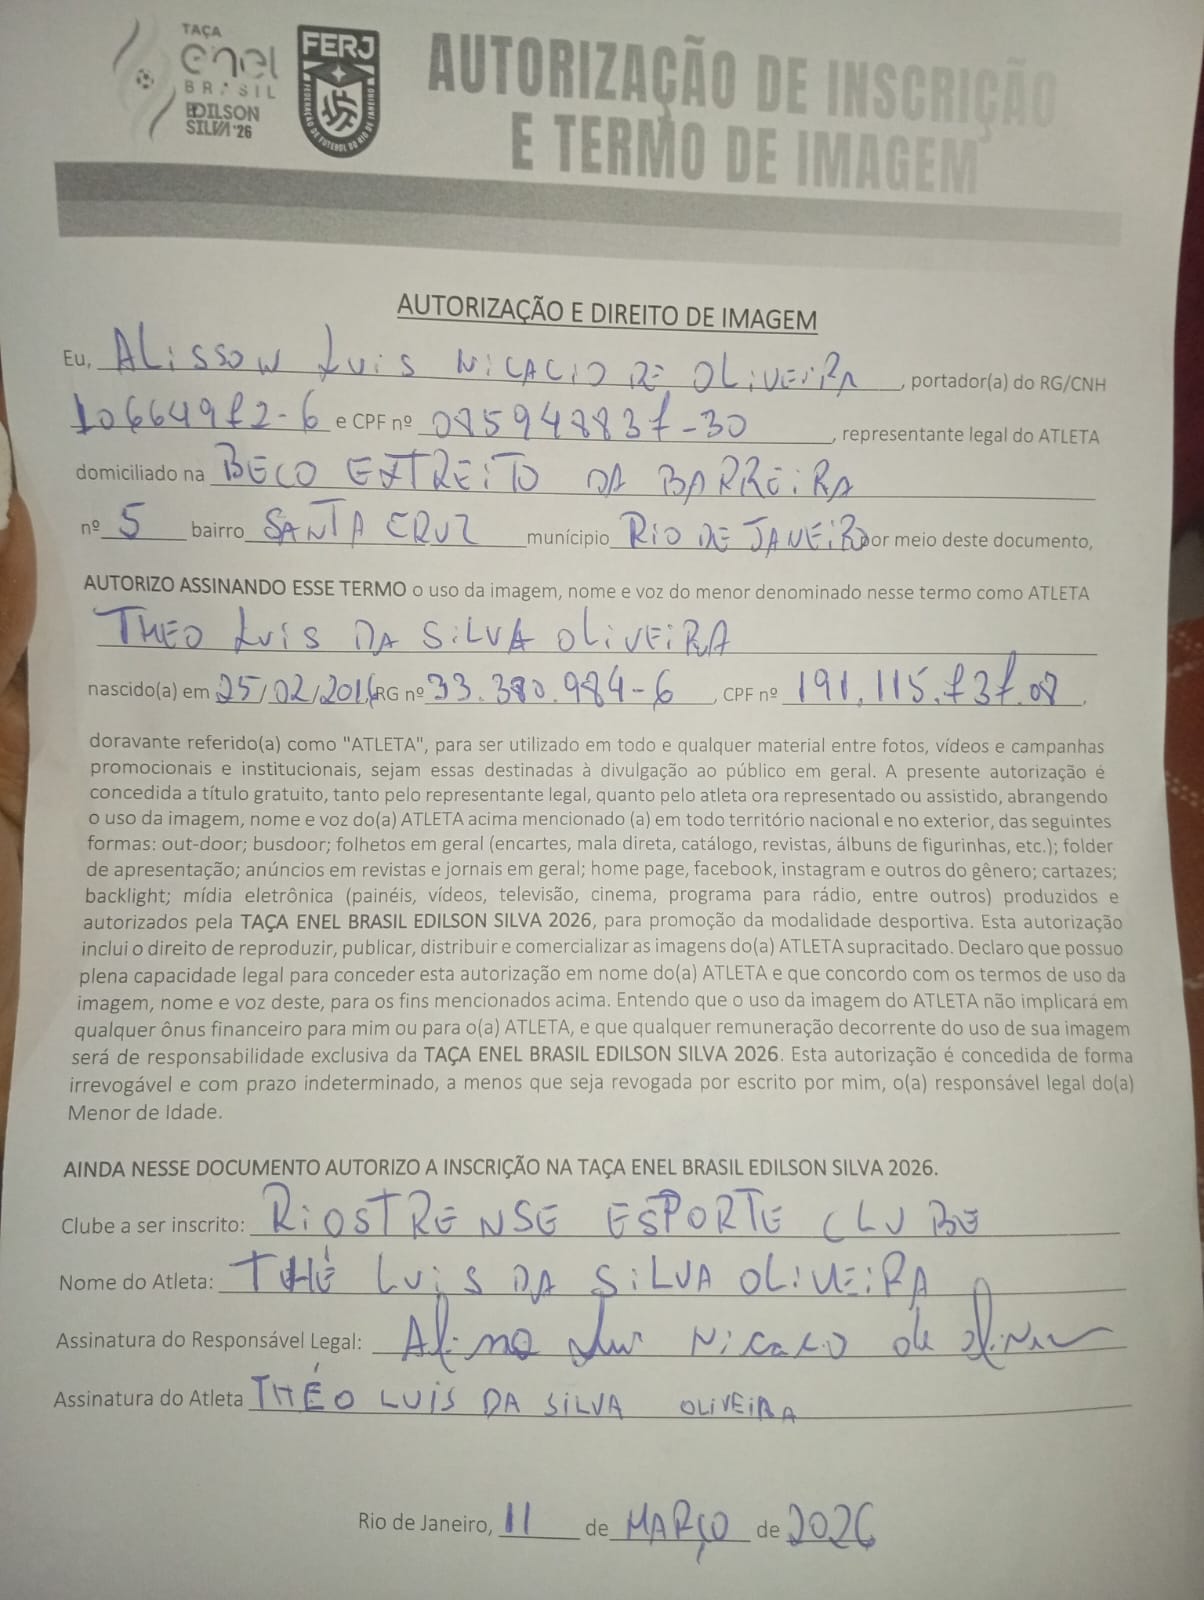 TAÇA
enel
BRASIL
EDILSON
SILVA '26
FERJ
FEDERAÇÃO DE FUTEBOL DO RIO DE JANEIRO
AUTORIZAÇÃO DE INSCRIÇÃO
E TERMO DE IMAGEM
AUTORIZAÇÃO E DIREITO DE IMAGEM
Eu, ALISSON LUIS NICACIO DE OLIVEIRA, portador(a) do RG/CNH
10664972-6 e CPF nº 085948837-30, representante legal do ATLETA
domiciliado na BECO EXTREITO DA BARREIRA
nº 5 bairro SANTA CRUZ munícipio RIO DE JANEIRO por meio deste documento,
AUTORIZO ASSINANDO ESSE TERMO o uso da imagem, nome e voz do menor denominado nesse termo como ATLETA
THEO LUIS DA SILVA OLIVEIRA
nascido(a) em 25/02/2016, RG nº 33.380.984-6, CPF nº 191.115.737.08,
doravante referido(a) como "ATLETA", para ser utilizado em todo e qualquer material entre fotos, vídeos e campanhas
promocionais e institucionais, sejam essas destinadas à divulgação ao público em geral. A presente autorização é
concedida a título gratuito, tanto pelo representante legal, quanto pelo atleta ora representado ou assistido, abrangendo
o uso da imagem, nome e voz do(a) ATLETA acima mencionado (a) em todo território nacional e no exterior, das seguintes
formas: out-door; busdoor; folhetos em geral (encartes, mala direta, catálogo, revistas, álbuns de figurinhas, etc.); folder
de apresentação; anúncios em revistas e jornais em geral; home page, facebook, instagram e outros do gênero; cartazes;
backlight; mídia eletrônica (painéis, vídeos, televisão, cinema, programa para rádio, entre outros) produzidos e
autorizados pela TAÇA ENEL BRASIL EDILSON SILVA 2026, para promoção da modalidade desportiva. Esta autorização
inclui o direito de reproduzir, publicar, distribuir e comercializar as imagens do(a) ATLETA supracitado. Declaro que possuo
plena capacidade legal para conceder esta autorização em nome do(a) ATLETA e que concordo com os termos de uso da
imagem, nome e voz deste, para os fins mencionados acima. Entendo que o uso da imagem do ATLETA não implicará em
qualquer ônus financeiro para mim ou para o(a) ATLETA, e que qualquer remuneração decorrente do uso de sua imagem
será de responsabilidade exclusiva da TAÇA ENEL BRASIL EDILSON SILVA 2026. Esta autorização é concedida de forma
irrevogável e com prazo indeterminado, a menos que seja revogada por escrito por mim, o(a) responsável legal do(a)
Menor de Idade.
AINDA NESSE DOCUMENTO AUTORIZO A INSCRIÇÃO NA TAÇA ENEL BRASIL EDILSON SILVA 2026.
Clube a ser inscrito: RIOSTRENSE ESPORTE CLUBE
Nome do Atleta: THÉ LUIS DA SILVA OLIVEIRA
Assinatura do Responsável Legal: Nicacio de
Assinatura do Atleta THÉO LUIS DA SILVA OLIVEIRA
Rio de Janeiro, 11 de MARÇO de 2026